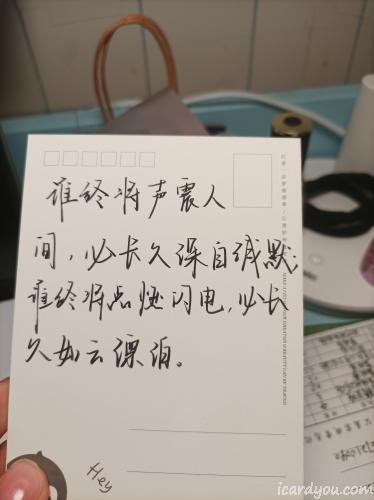 谁终将声震人
间，必长久深自缄默；
谁终将点燃闪电，必长
久如云漂泊。
Hey
icardyou.com